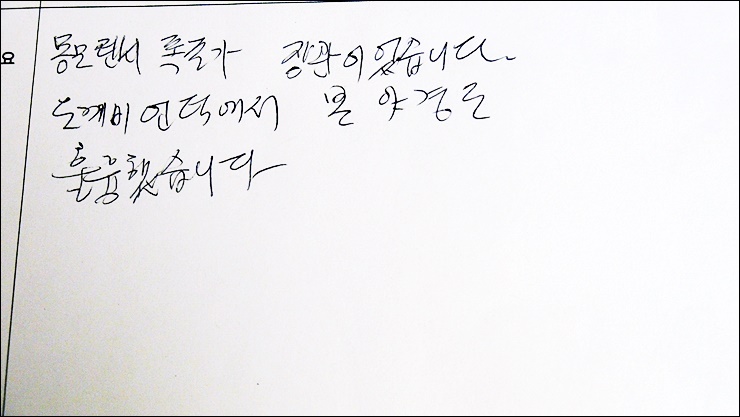 몽모렌시 폭포가 장관이었습니다.
도깨비 언덕에서 본 야경도
훌륭했습니다
요